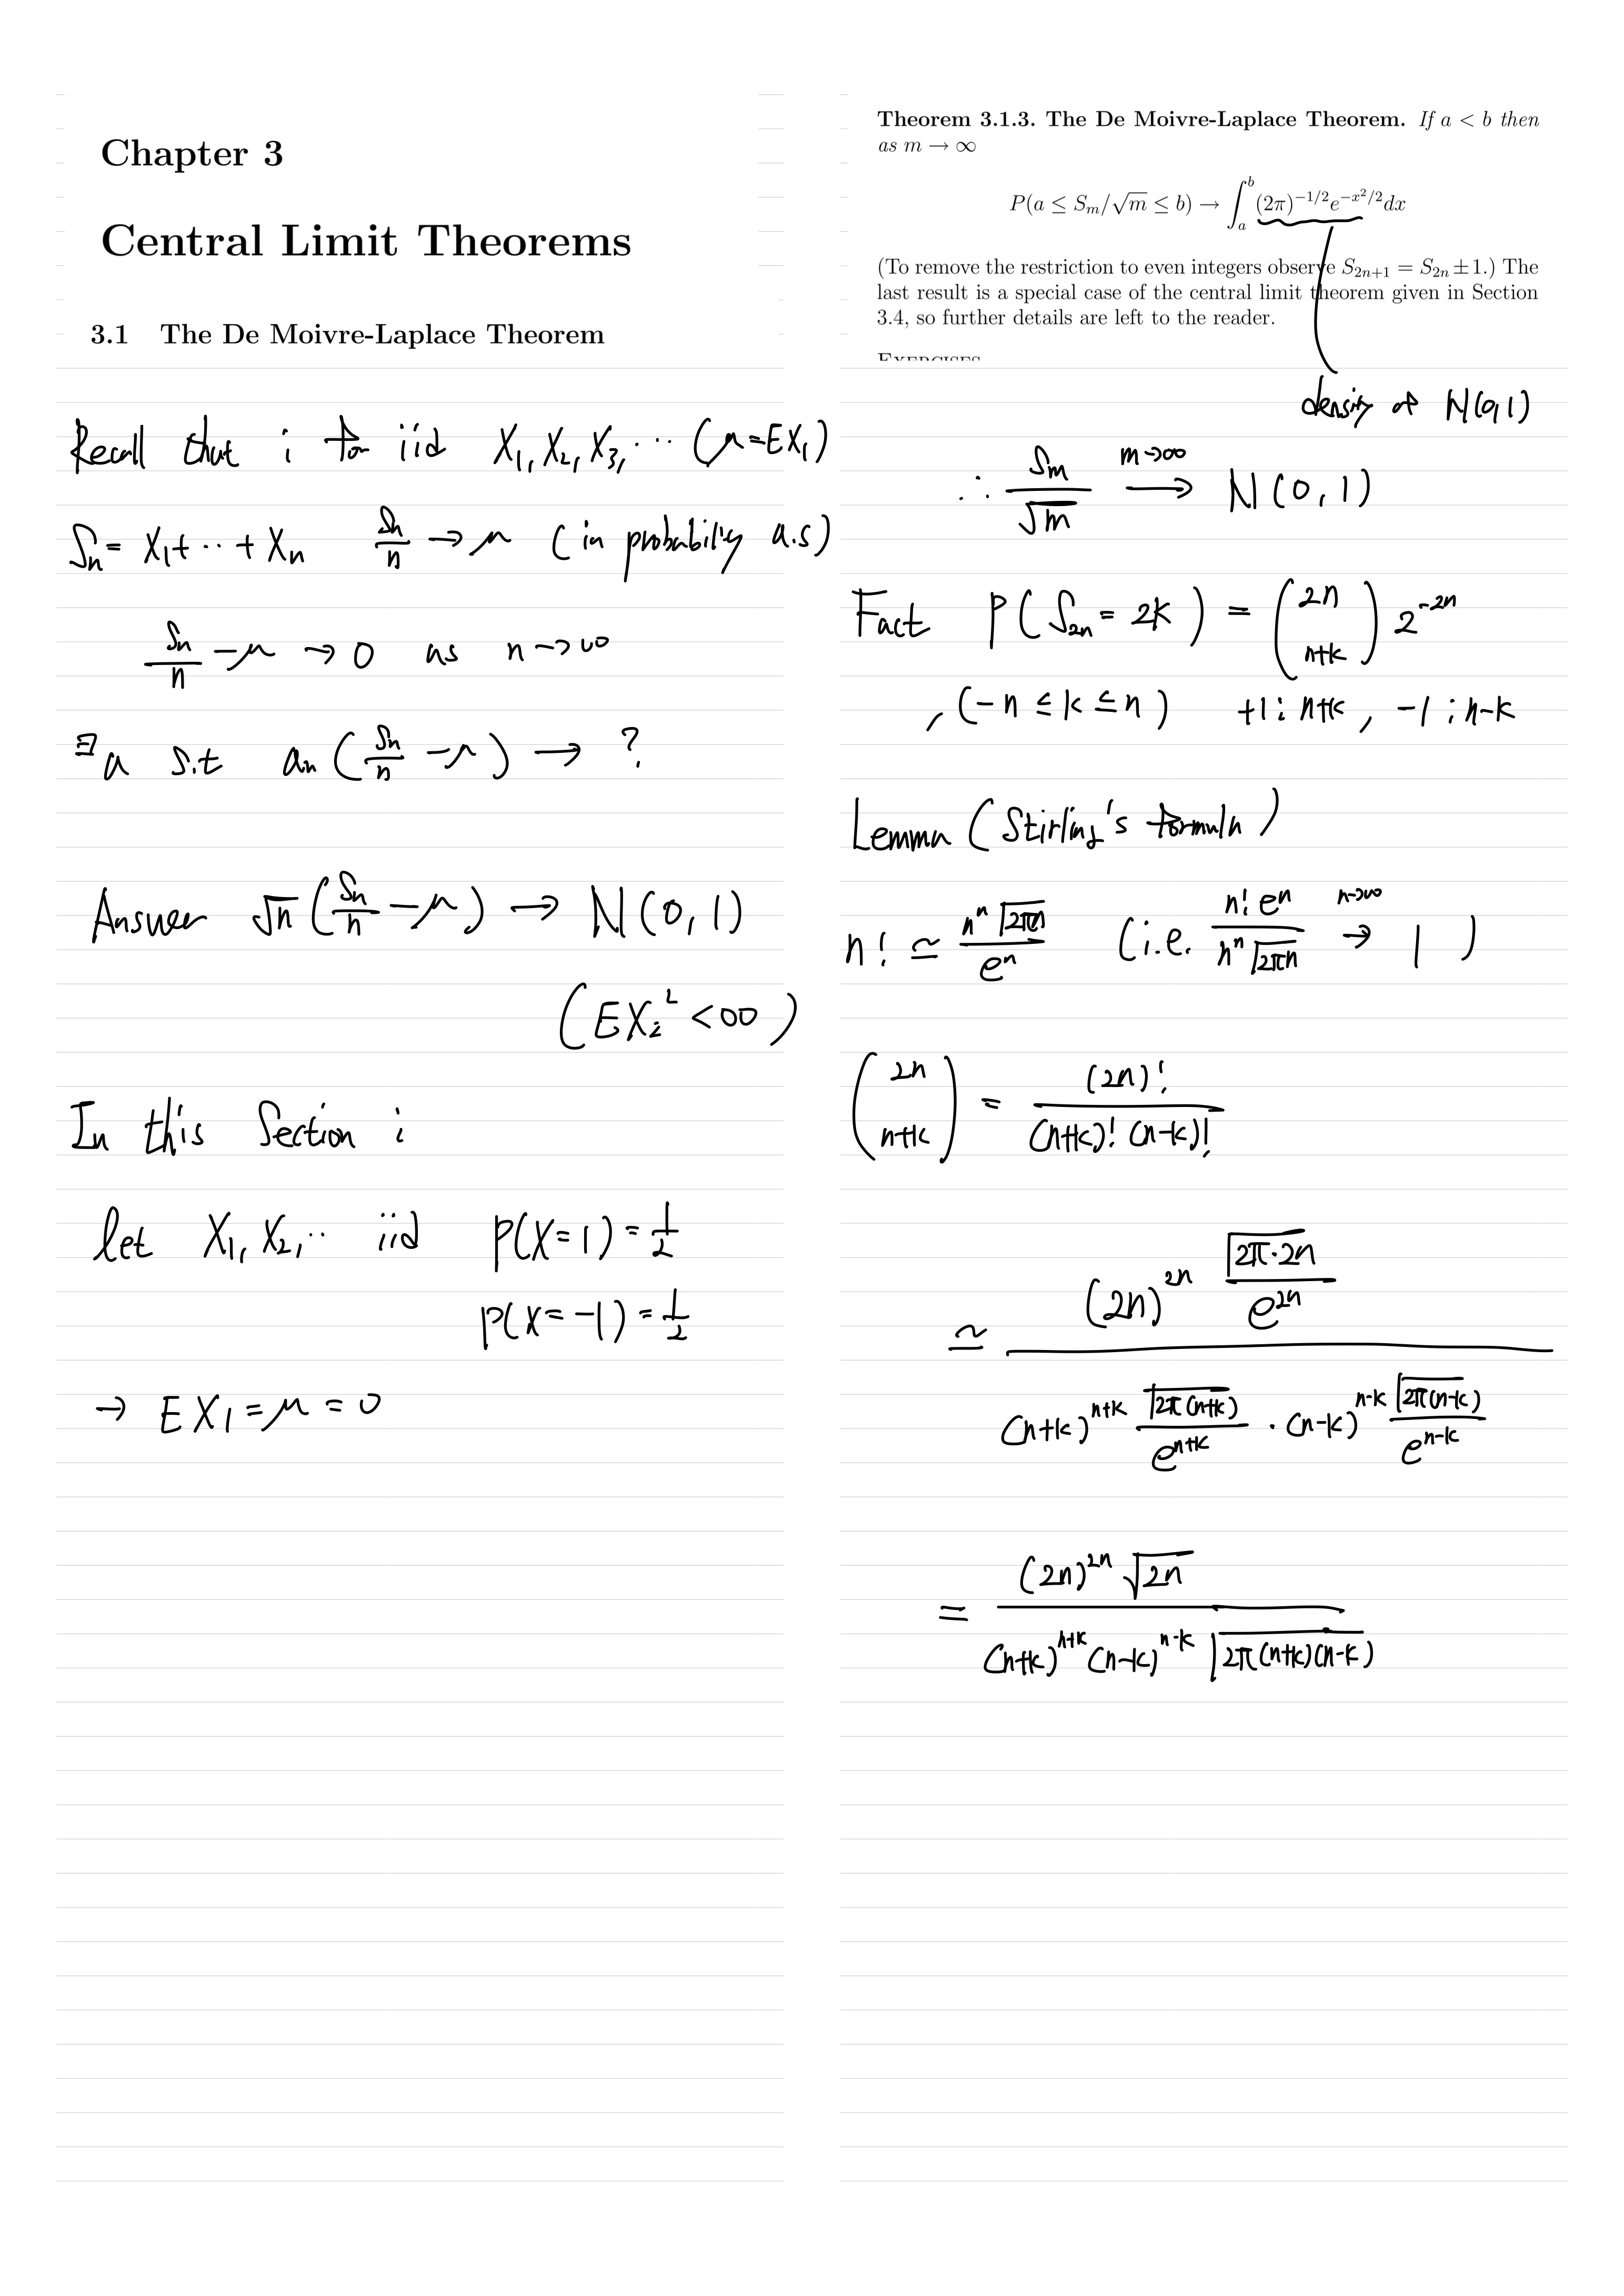 Chapter 3
Central Limit Theorems
3.1 The De Moivre-Laplace Theorem
Recall that ; for iid X₁, X₂, X₃, ⋯ (μ=EX₁)
Sₙ = X₁+⋯+Xₙ   Sₙ/n → μ (in probability a.s)
Sₙ/n − μ → 0 as n→∞
∃a s.t aₙ(Sₙ/n − μ) → ?
Answer √n(Sₙ/n − μ) → N(0,1)
(EXᵢ² < ∞)
In this Section ;
let X₁, X₂, ⋯ iid P(X=1) = 1/2
P(X=−1) = 1/2
→ EX₁ = μ = 0
Theorem 3.1.3. The De Moivre-Laplace Theorem. If a < b then
as m → ∞
P(a ≤ Sₘ/√m ≤ b) → ∫ₐᵇ (2π)^{−1/2} e^{−x²/2} dx
(To remove the restriction to even integers observe S₂ₙ₊₁ = S₂ₙ ± 1.) The
last result is a special case of the central limit theorem given in Section
3.4, so further details are left to the reader.
Exercises
density of N(0,1)
∴ Sₘ/√m →^{m→∞} N(0,1)
Fact P(S₂ₙ = 2k) = (2n choose n+k) 2^{−2n}
, (−n ≤ k ≤ n) +1 ; n+k, −1 ; n−k
Lemma (Stirling's formula)
n! ≃ nⁿ√(2πn) / eⁿ (i.e. n! eⁿ / (nⁿ√(2πn)) →^{n→∞} 1)
(2n choose n+k) = (2n)! / ((n+k)! (n−k)!)
≃ ((2n)^{2n} √(2π·2n)/e^{2n}) / ((n+k)^{n+k} √(2π(n+k))/e^{n+k} · (n−k)^{n−k} √(2π(n−k))/e^{n−k})
= (2n)^{2n} √(2n) / ((n+k)^{n+k} (n−k)^{n−k} √(2π(n+k)(n−k)))